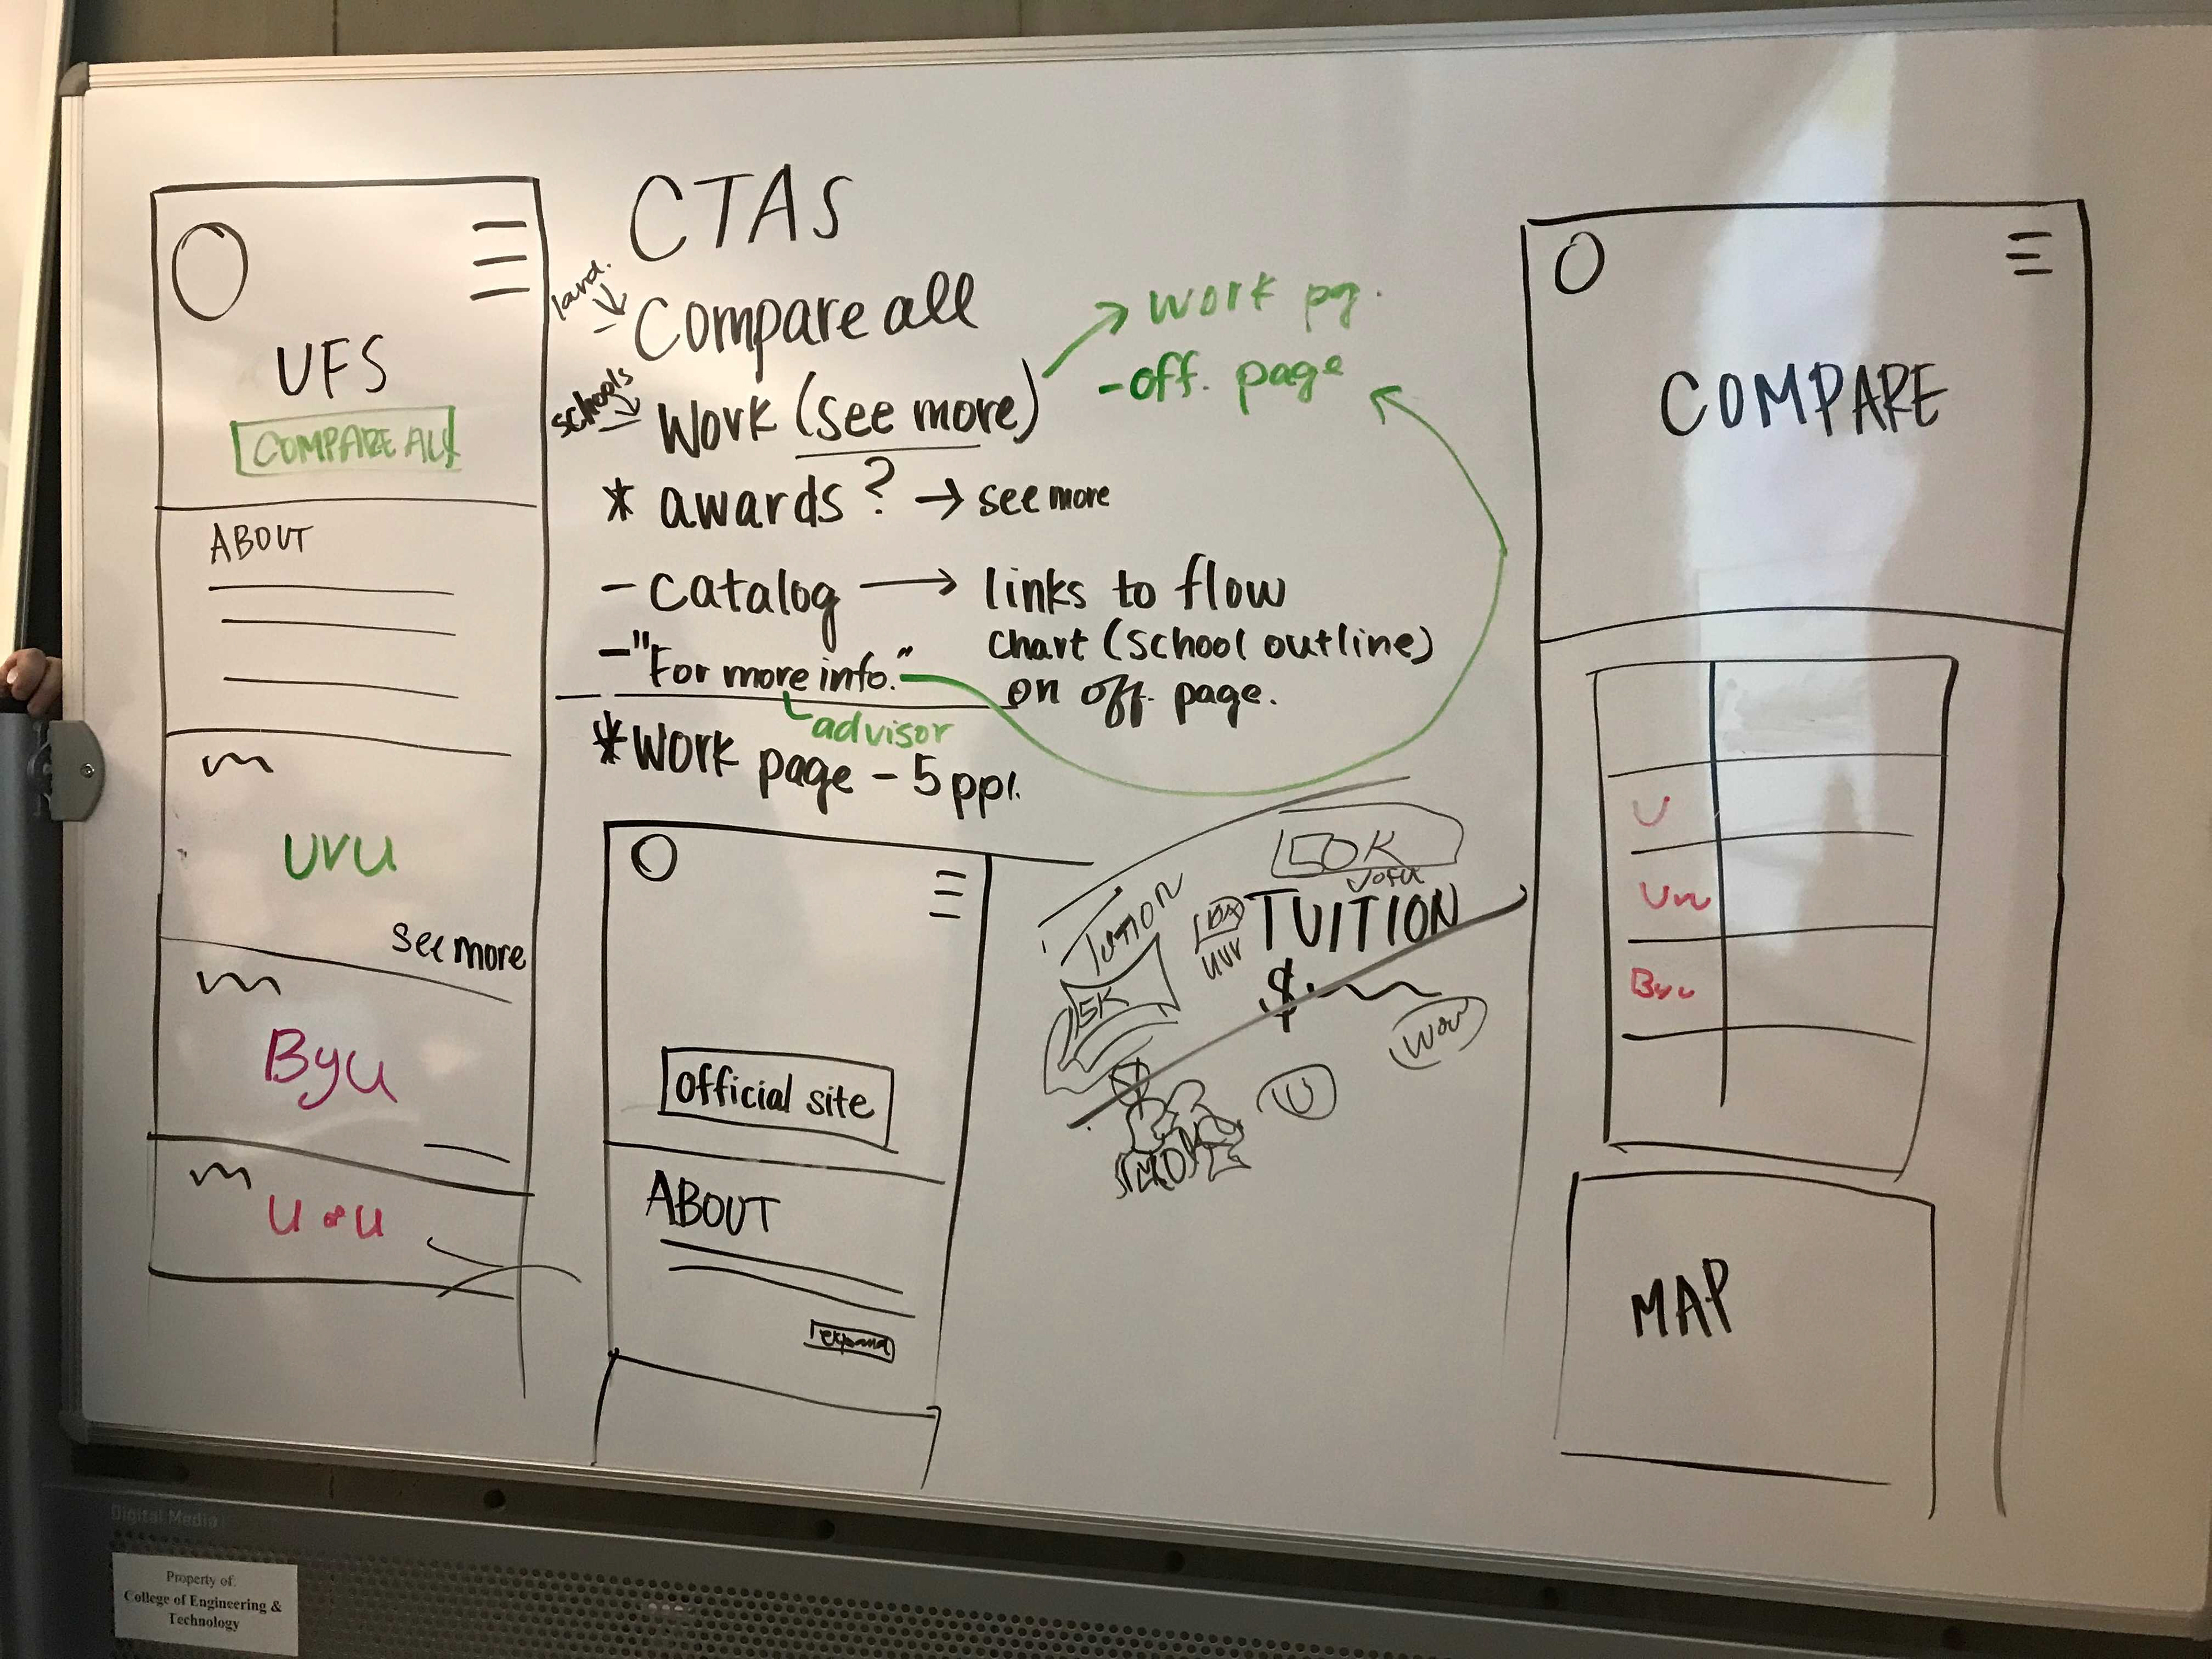 UFS
COMPARE ALL
ABOUT
UVU
See more
Byu
U of U
CTAS
land.
Compare all
schools
Work (see more)
* awards? → see more
- catalog → links to flow
chart (school outline)
on off. page.
- "For more info."
advisor
* Work page - 5 ppl.
→ work pg.
- off. page
Official site
ABOUT
expand
TUITION
5K
50K
UofU
UVU
TUITION
$
WOW
U
COMPARE
U
Uvu
Byu
MAP
Digital Media
Property of:
College of Engineering &
Technology